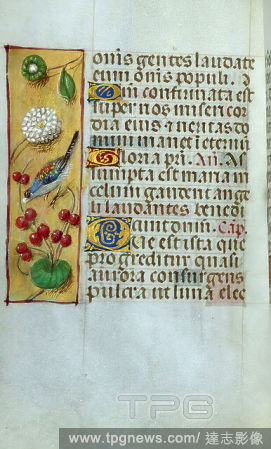 omīs gentes laudate
eum omīs populi. Q
m confirmata est
super nos misericor
dia eius et veritas do
mini manet ī eternū
Gloria pri. Añ. As
sumpta est maria in
celum gaudent ange
li laudantes benedi
cunt dnm. Cap.
Que est ista que
progreditur quasi
aurora consurgens
pulcra ut luna elec
TPG
www.tpgnews.com / 達志影像